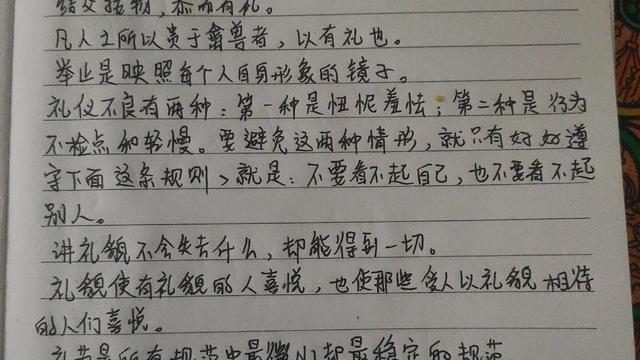 结交接物,恭而有礼。
凡人之所以贵于禽兽者,以有礼也。
举止是映照每个人自身形象的镜子。
礼仪不良有两种:第一种是忸怩羞怯;第二种是行为
不检点和轻慢。要避免这两种情形,就只有好好遵
守下面这条规则,就是:不要看不起自己,也不要看不起
别人。
讲礼貌不会失去什么,却能得到一切。
礼貌使有礼貌的人喜悦,也使那些受人以礼貌相待
的人们喜悦。
礼节是所有规范中最微小却最稳定的规范